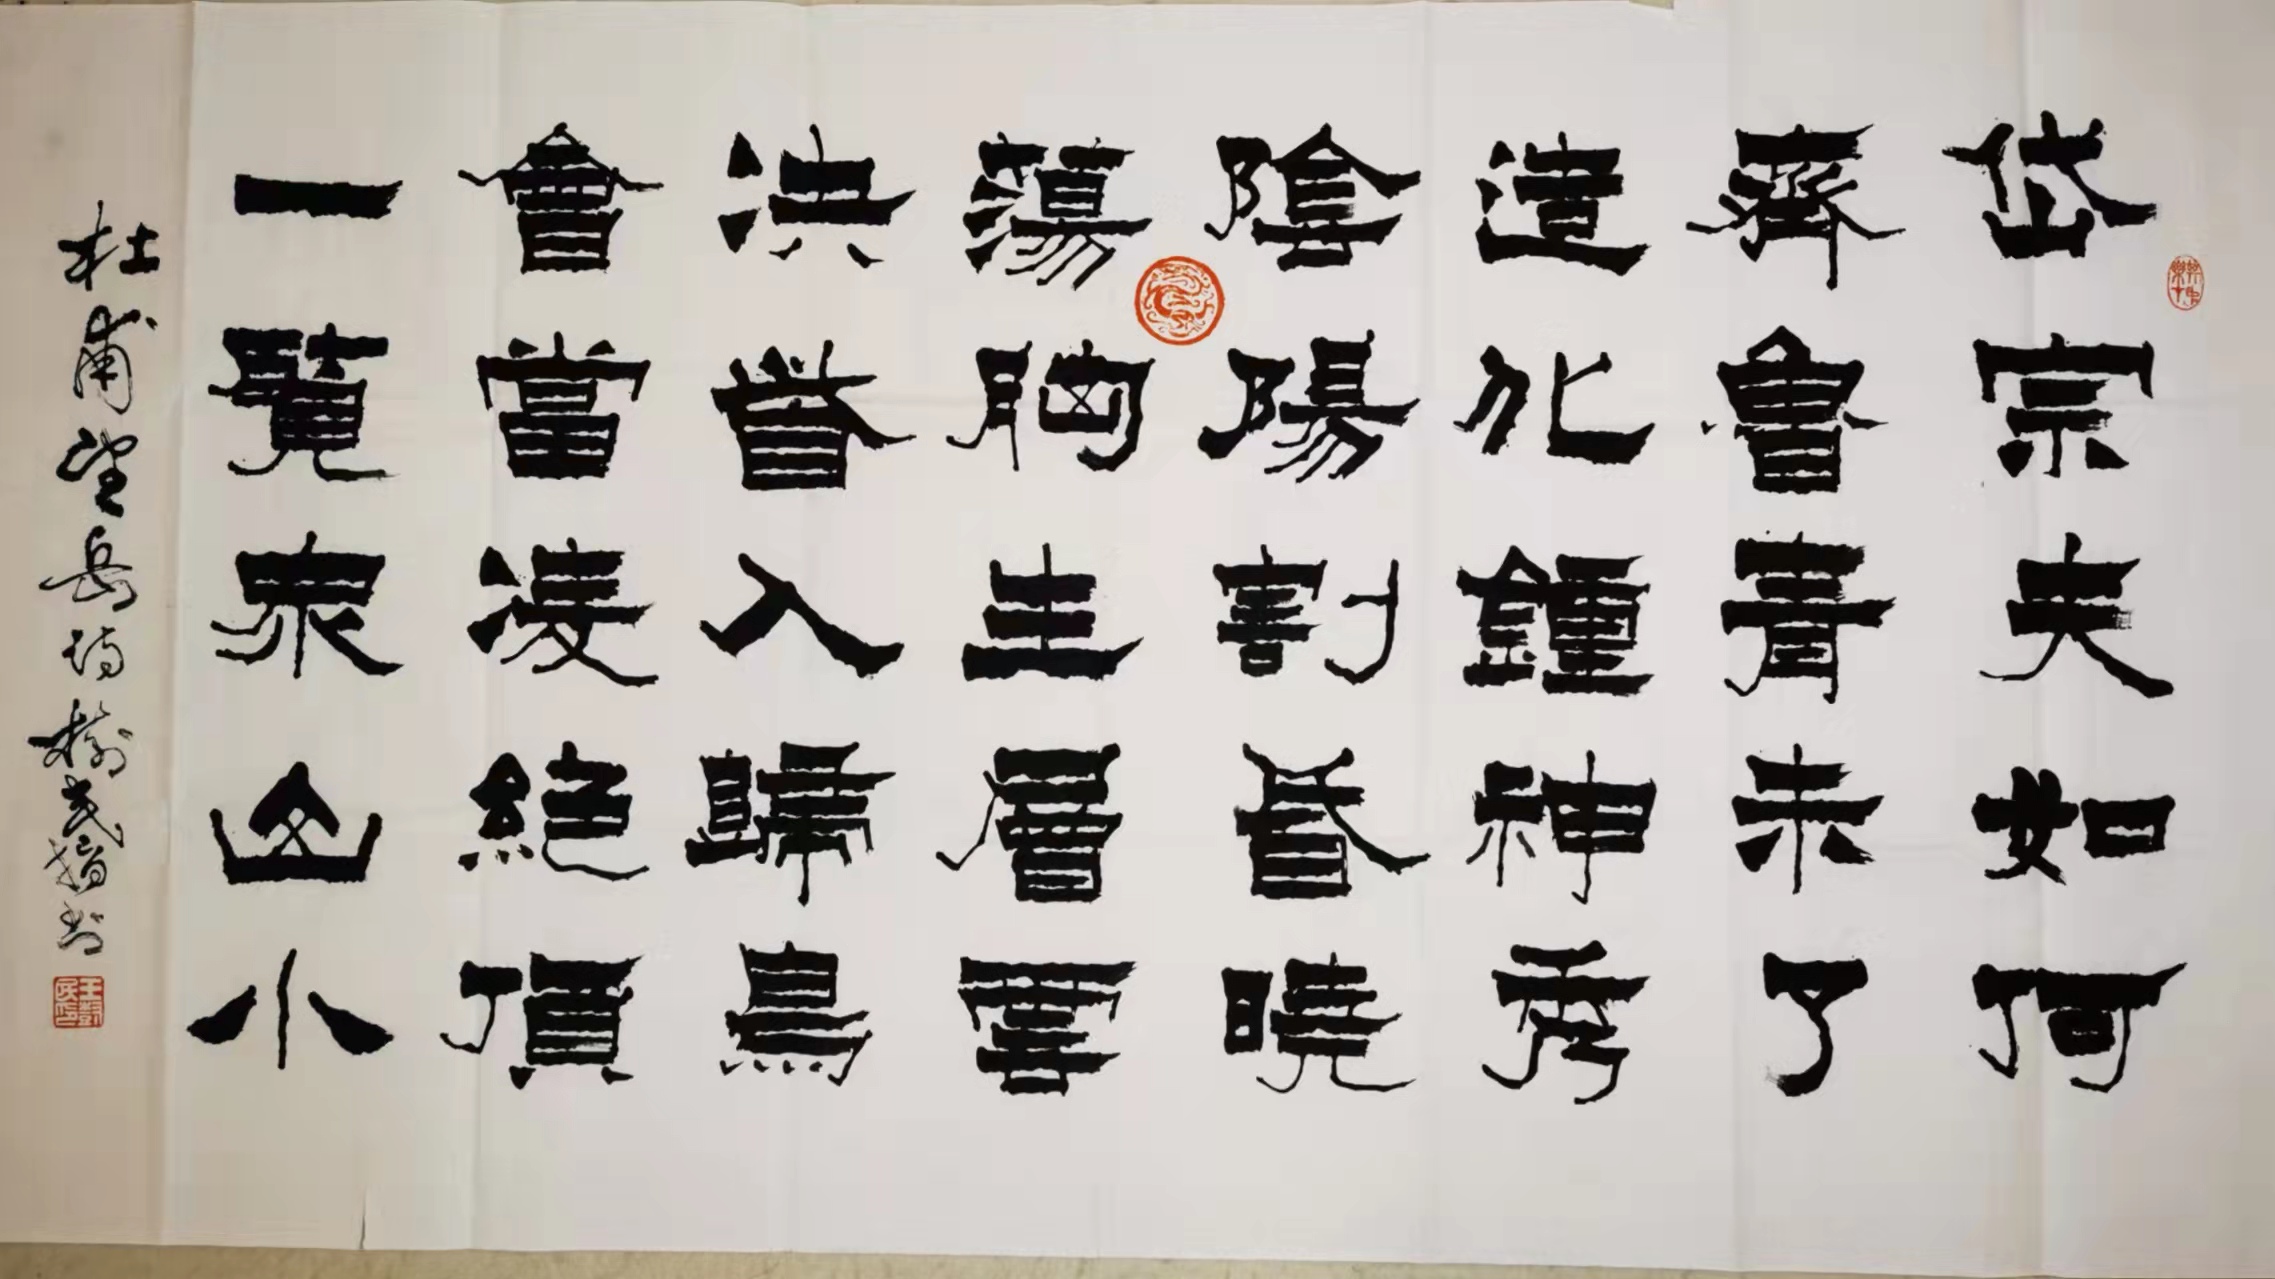 岱宗夫如何
齊魯青未了
造化鍾神秀
陰陽割昏曉
蕩胸生層雲
決眥入歸鳥
會當凌絕頂
一覽眾山小
杜甫望岳詩